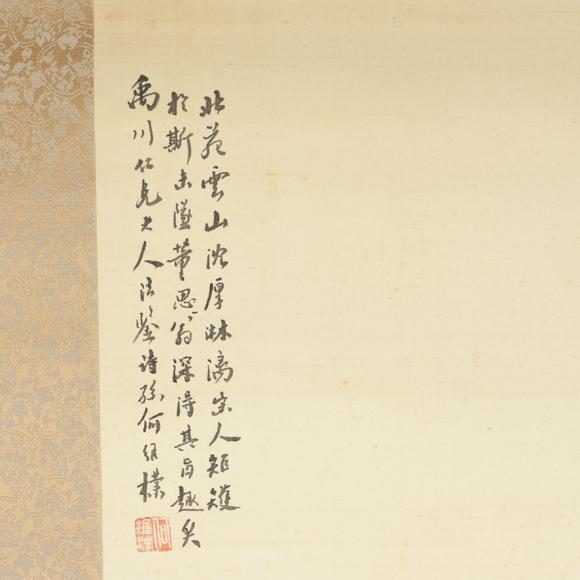 北苑雲山沈厚淋漓宋人矩矱
於斯未墜董思翁深得其旨趣矣
禹川仁兄大人法鑒詩孫何維樸
何維樸